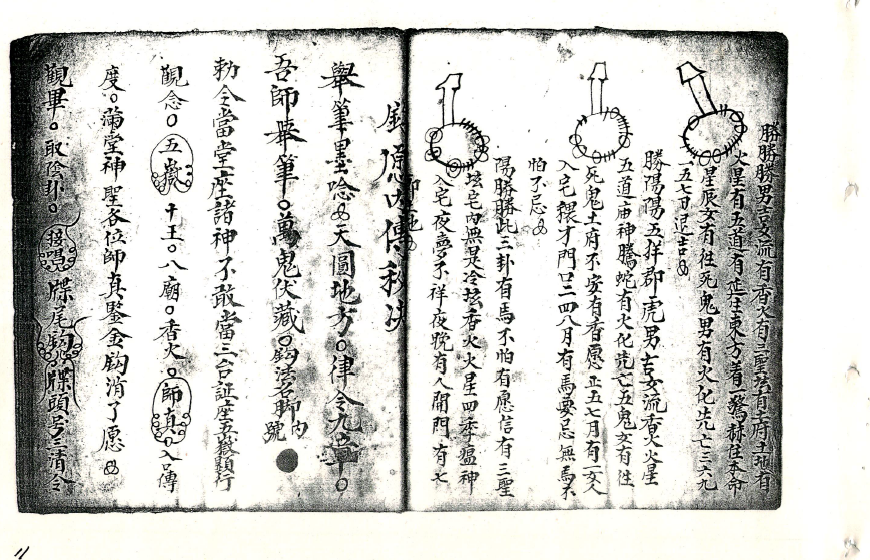 勝勝勝男吉女流有香火有三聖坛有土府土地有
火星有五道有正往東方着驚赫住本命
星辰女有性死鬼男有火化先亡三六九
一五七月退吉
勝陽陽五拜郡虎男吉女流香火火星
五道庙神騰蛇有火化先亡五鬼女有性
死鬼土府不安有香愿正五七月有一女人
入宅 才門口二四八月有馬要忌無馬不
怕不忌
陽勝勝此三卦有馬不怕有愿信有三聖
坛宅内無是冷坛香火火星四季瘟神
入宅夜夢不祥夜晚有人開門有七
愿内傳秘決
舉筆墨唸 天圓地方。律令九章。
吾師舉筆。萬鬼伏藏。鈎法名脚内號
勅令當堂座諸神不敢當三台証座五嶽類行
觀念。五嶽 十王。八廟。香火。師真。入吕傳
度。滿堂神聖各位師真鑒金鈎消了愿
觀畢。取陰卦。接唱 牒尾鈎 牒頭 三清令